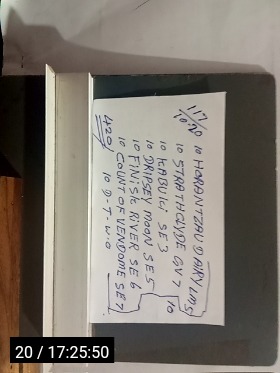 117/20
10 HORANTZAU D'AIRY LMS
10 STRATHCLYDE GV7
10 KABUKI SE3
10 DRIPSEY MOON SE5
10 FINISK RIVER SE6
10 COUNT OF VENDOME SE7
10
420/
10 D-T-W.O
20 / 17:25:50